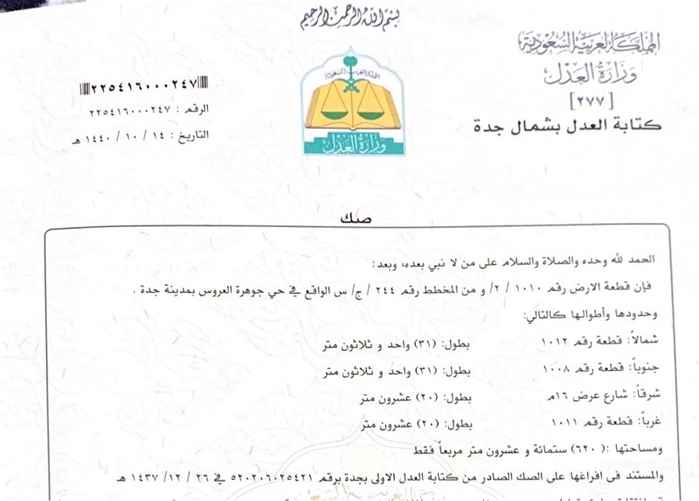 بسم الله الرحمن الرحيم
المملكة العربية السعودية
وزارة العدل
[٢٧٧]
كتابة العدل بشمال جدة
٢٢٥٤١٦٠٠٠٢٤٧
الرقم : ٢٢٥٤١٦٠٠٠٢٤٧
التاريخ : ١٤ / ١٠ / ١٤٤٠ هـ
وزارة العدل
صك
الحمد لله وحده والصلاة والسلام على من لا نبي بعده، وبعد:
فإن قطعة الارض رقم ١٠١٠ / ٢/ و من المخطط رقم ٢٤٤ / ج/ س الواقع في حي جوهرة العروس بمدينة جدة .
وحدودها وأطوالها كالتالي:
شمالاً: قطعة رقم ١٠١٢ بطول: (٣١) واحد و ثلاثون متر
جنوباً: قطعة رقم ١٠٠٨ بطول: (٣١) واحد و ثلاثون متر
شرقاً: شارع عرض ١٦م بطول: (٢٠) عشرون متر
غرباً: قطعة رقم ١٠١١ بطول: (٢٠) عشرون متر
ومساحتها :( ٦٢٠) ستمائة و عشرون متر مربعاً فقط
والمستند في افراغها على الصك الصادر من كتابة العدل الاولى بجدة برقم ٥٢٠٢٠٦٠٢٥٤٢١ في ٢٦ / ١٢ / ١٤٣٧ هـ